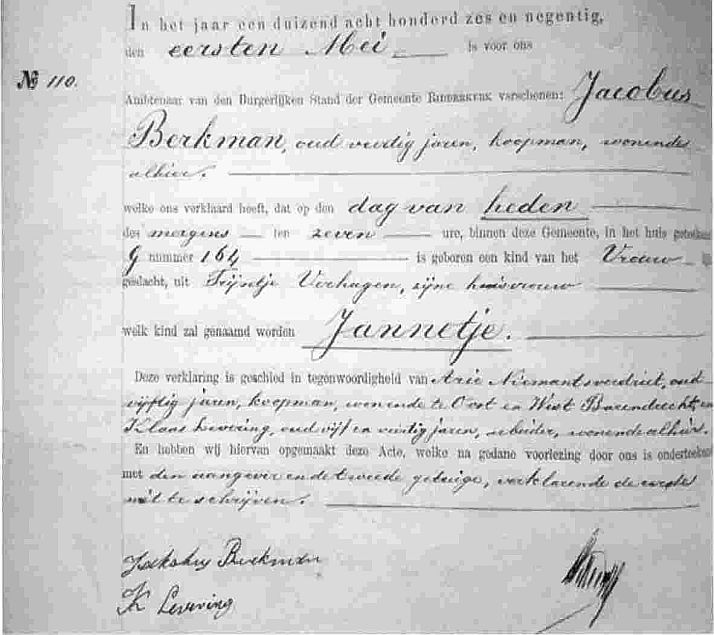 In het jaar een duizend acht honderd zes en negentig,
den eersten Mei is voor ons
№ 110.
Ambtenaar van den Burgerlijken Stand der Gemeente RIDDERKERK verschenen: Jacobus
Berkman, oud veertig jaren, koopman, wonende
alhier.
welke ons verklaard heeft, dat op den dag van heden
des morgens ten zeven ure, binnen deze Gemeente, in het huis geteekend
G nummer 164 is geboren een kind van het Vrouw
geslacht, uit Trijntje Verhagen, zijne huisvrouw
welk kind zal genaamd worden Jannetje.
Deze verklaring is geschied in tegenwoordigheid van Arie Niemantsverdriet, oud
vijftig jaren, koopman, wonende te Oost en West Barendrecht, en
Klaas Levering, oud vijf en veertig jaren, arbeider, wonende alhier.
En hebben wij hiervan opgemaakt deze Acte, welke na gedane voorlezing door ons is onderteekend
met den aangever en de tweede getuige, verklarende de eerste
niet te schrijven.
Jackobus Berkman
K Levering